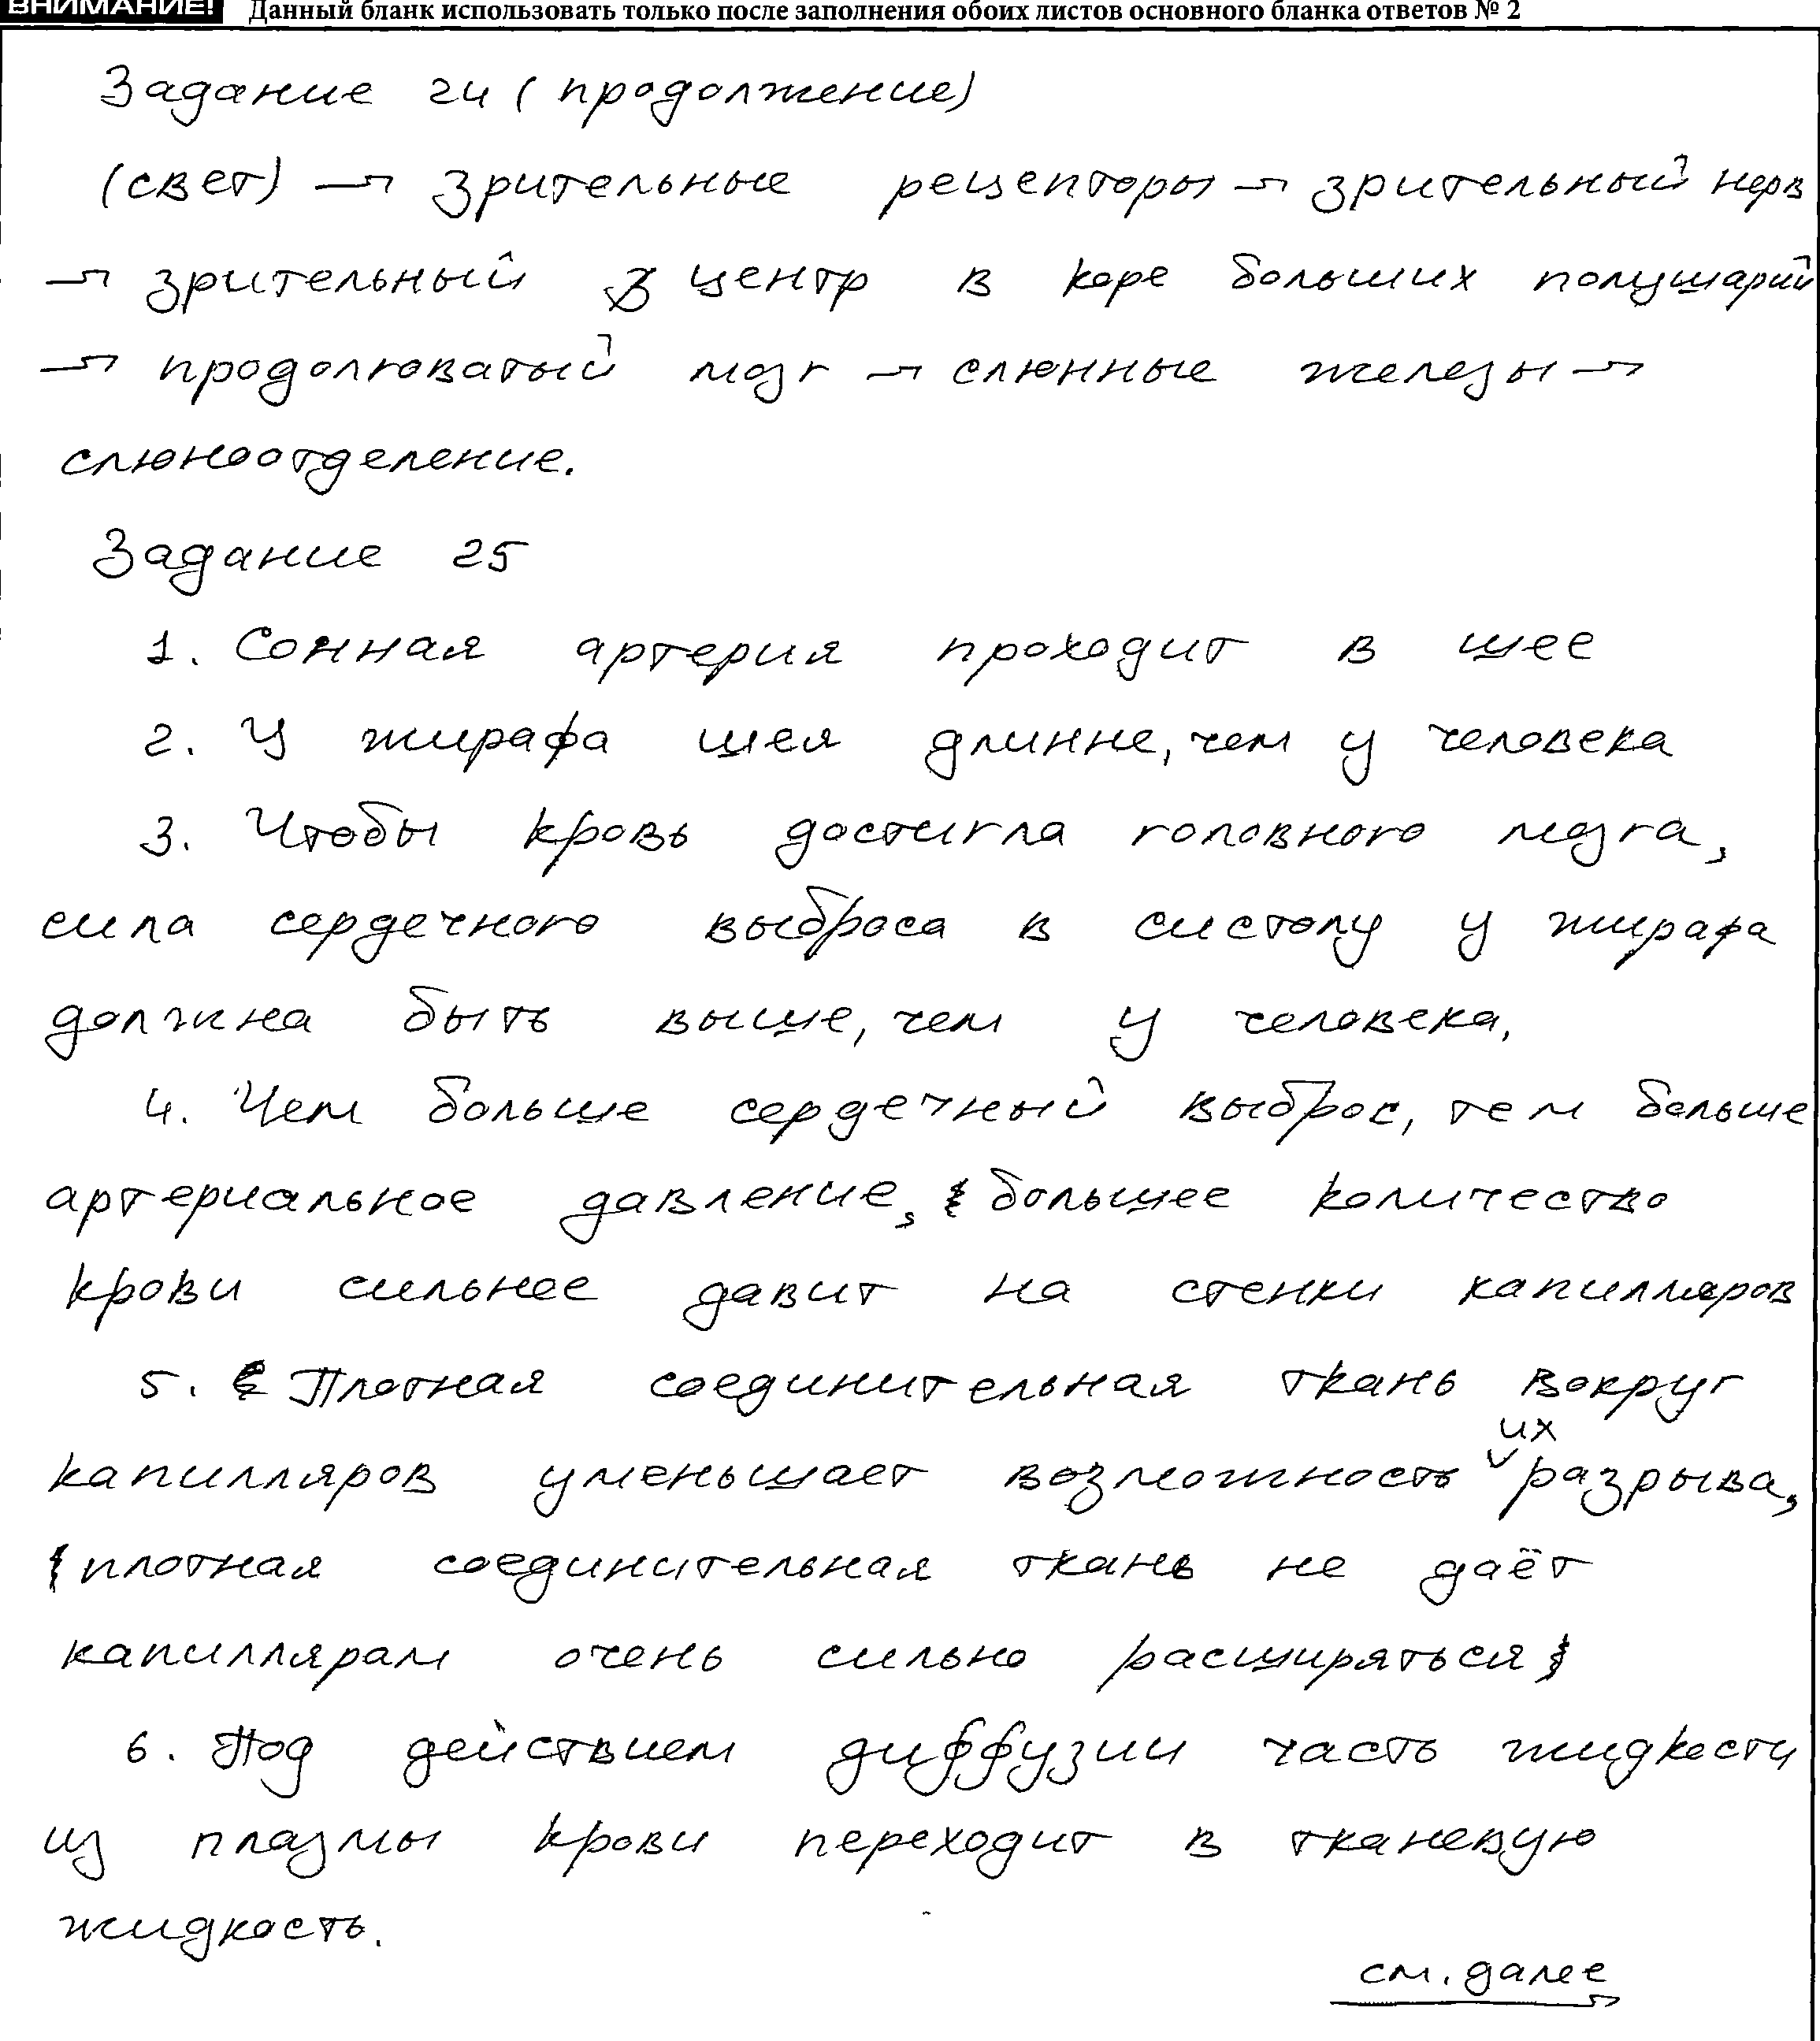 ВНИМАНИЕ! Данный бланк использовать только после заполнения обоих листов основного бланка ответов № 2
Задание 24 (продолжение)
(свет) → зрительные рецепторы → зрительный нерв
→ зрительный центр в коре больших полушарий
→ продолговатый мозг → слюнные железы →
слюноотделение.
Задание 25
1. Сонная артерия проходит в шее
2. У жирафа шея длинне, чем у человека
3. Чтобы кровь достигла головного мозга,
сила сердечного выброса в систолу у жирафа
должна быть выше, чем у человека.
4. Чем больше сердечный выброс, тем больше
артериальное давление, большее количество
крови сильнее давит на стенки капилляров
5. Плотная соединительная ткань вокруг
капилляров уменьшает возможность их разрыва,
плотная соединительная ткань не даёт
капиллярам очень сильно расширяться
6. Под действием диффузии часть жидкости
из плазмы крови переходит в тканевую
жидкость.
см. далее